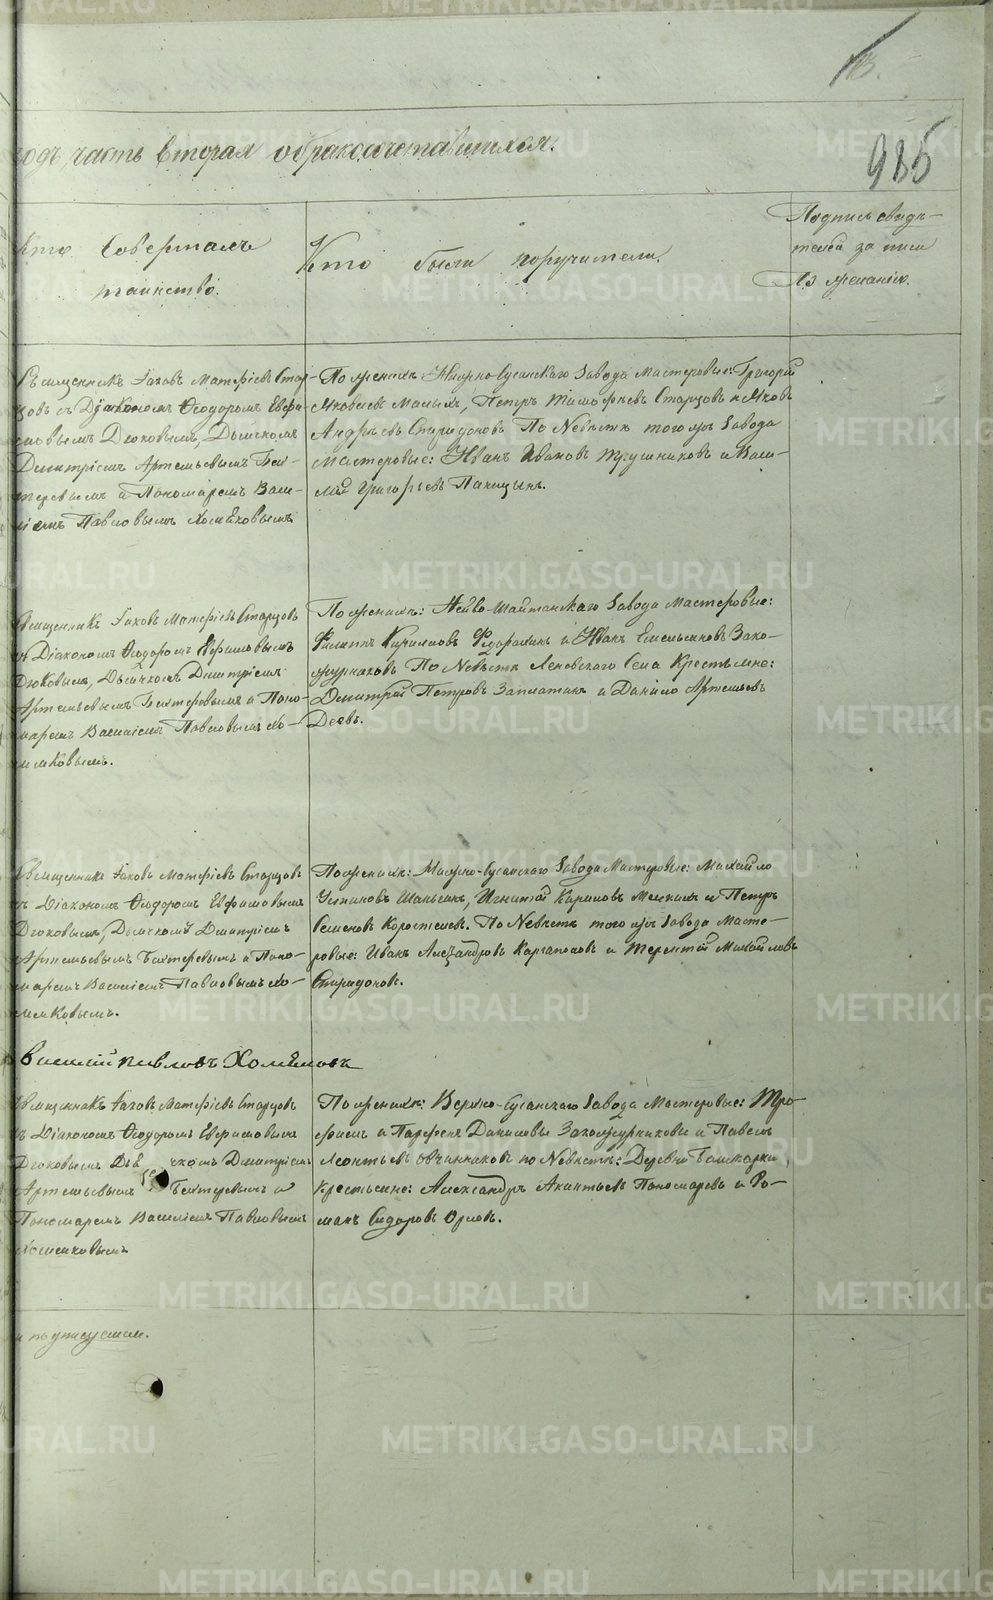 METRIKI.GASO-URAL.RU
13.
одъ часть вторая о бракосочетавшихся.
985
Кто совершалъ
таинство.
Кто были поручители.
Подпись свидѣ-
телей за писи
По желанію.
Священникъ Іаковъ Матѳіевъ Стар-
цовъ съ Діакономъ Ѳеодоромъ Евфи-
мовымъ Дюковымъ, Дьячкомъ
Димитріемъ Артемьевымъ Бех-
теревымъ и Пономаремъ Васи-
ліемъ Павловымъ Хомяковымъ
По женихѣ Нижно-Сусанскаго Завода Мастеровые: Григорій
Яковлевъ Малыхъ, Петръ Тимофеевъ Старцовъ и Яковъ
Андрѣевъ Спиридоновъ По Невѣстѣ того же Завода
Мастеровые: Иванъ Ивановъ Трушниковъ и Васи-
лій Григорьевъ Паницынъ.
Священникъ Іаковъ Матѳіевъ Старцовъ
съ Діакономъ Ѳеодоромъ Евфимовымъ
Дюковымъ, Дьячкомъ Димитріемъ
Артемьевымъ Бехтеревымъ и Поно-
маремъ Василіемъ Павловымъ Хо-
мяковымъ.
По женихѣ: Нейво-Шайтанскаго Завода Мастеровые:
Филипъ Кириловъ Ѳедоралихъ и Иванъ Емельяновъ Зако-
журниковъ По Невѣстѣ Леневскаго Села Крестьяне:
Дмитрій Петровъ Заплаткинъ и Данило Артемьевъ
Деевъ.
Священникъ Іаковъ Матѳіевъ Старцовъ
съ Діакономъ Ѳеодоромъ Евфимовымъ
Дюковымъ, Дьячкомъ Димитріемъ
Артемьевымъ Бехтеревымъ и Поно-
маремъ Василіемъ Павловымъ Хо-
мяковымъ.
По женихѣ: Нижно-Сусанскаго Завода Мастеровые: Михайло
Устиновъ Шаньгинъ, Игнатій Карповъ Мелкихъ и Петръ
Семеновъ Коростелев. По Невѣстѣ того же Завода Масте-
ровые: Иванъ Александровъ Каргаполовъ и Терентій Михайловъ
Спиридоновъ.
Василій Павловъ Хомяковъ
Священникъ Іаковъ Матѳіевъ Старцовъ
съ Діакономъ Ѳеодоромъ Евфимовымъ
Дюковымъ Дья чкомъ Димитріемъ
Артемьевымъ Бехтеревымъ и
Пономаремъ Василіемъ Павловымъ
Хомяковымъ
По женихѣ: Верхно-Сусанскаго Завода Мастеровые: Тро-
фимъ и Парфенъ Даниловы Закожурниковы и Павелъ
Леонтьевъ Овчинниковъ по Невѣстѣ: Деревни Башкарки,
крестьяне: Александръ Акинтьевъ Пономаревъ и Ро-
манъ Сидоровъ Орловъ.
и подписуемся.